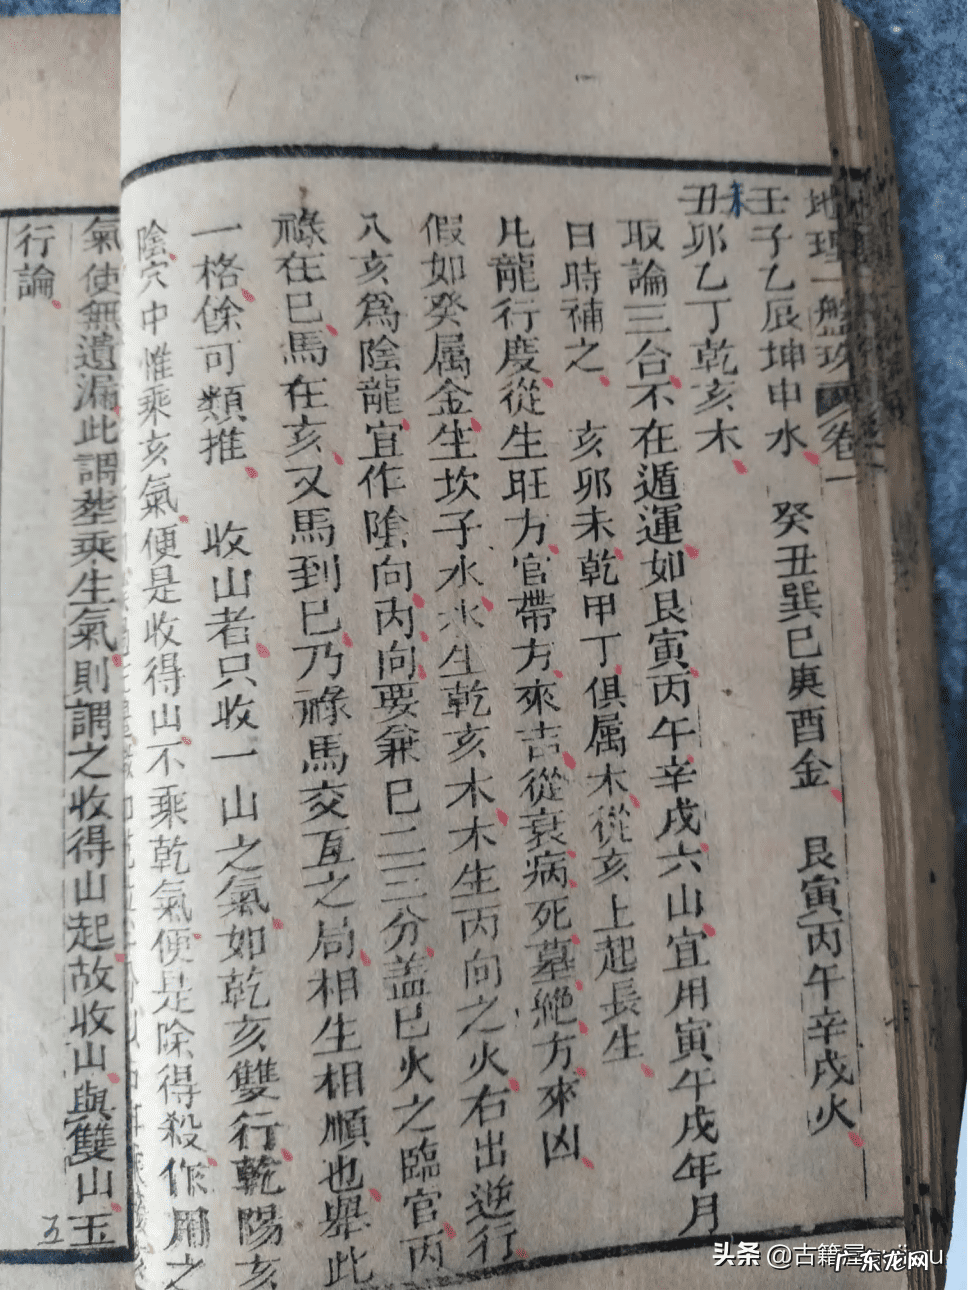 地理一盤攷 卷一
壬子乙辰坤申水 癸丑巽巳庚酉金 艮寅丙午辛戌火
未
丑卯乙丁乾亥木
取論三合不在遁運如艮寅丙午辛戌六山宜用寅午戌年月
日時補之 亥卯未乾甲丁俱属木從亥上起長生
凡龍行度從生旺方官帶方來吉從衰病死墓絕方來凶
假如癸属金坐坎子水水生乾亥木木生丙向之火右出逆行
入亥爲陰龍宜作陰向丙向要兼巳二三分盖巳火之臨官丙
祿在巳馬在亥又馬到巳乃祿馬交互之局相生相順也舉此
一格餘可類推 收山者只收一山之氣如乾亥雙行乾陽亥
陰穴中惟乘亥氣便是收得山不乘乾氣便是除得殺作用之
氣使無遺漏此謂塟乘生氣則謂之收得山起故收山與雙山玉
行論
五
头条 @古籍屋
广东龙网